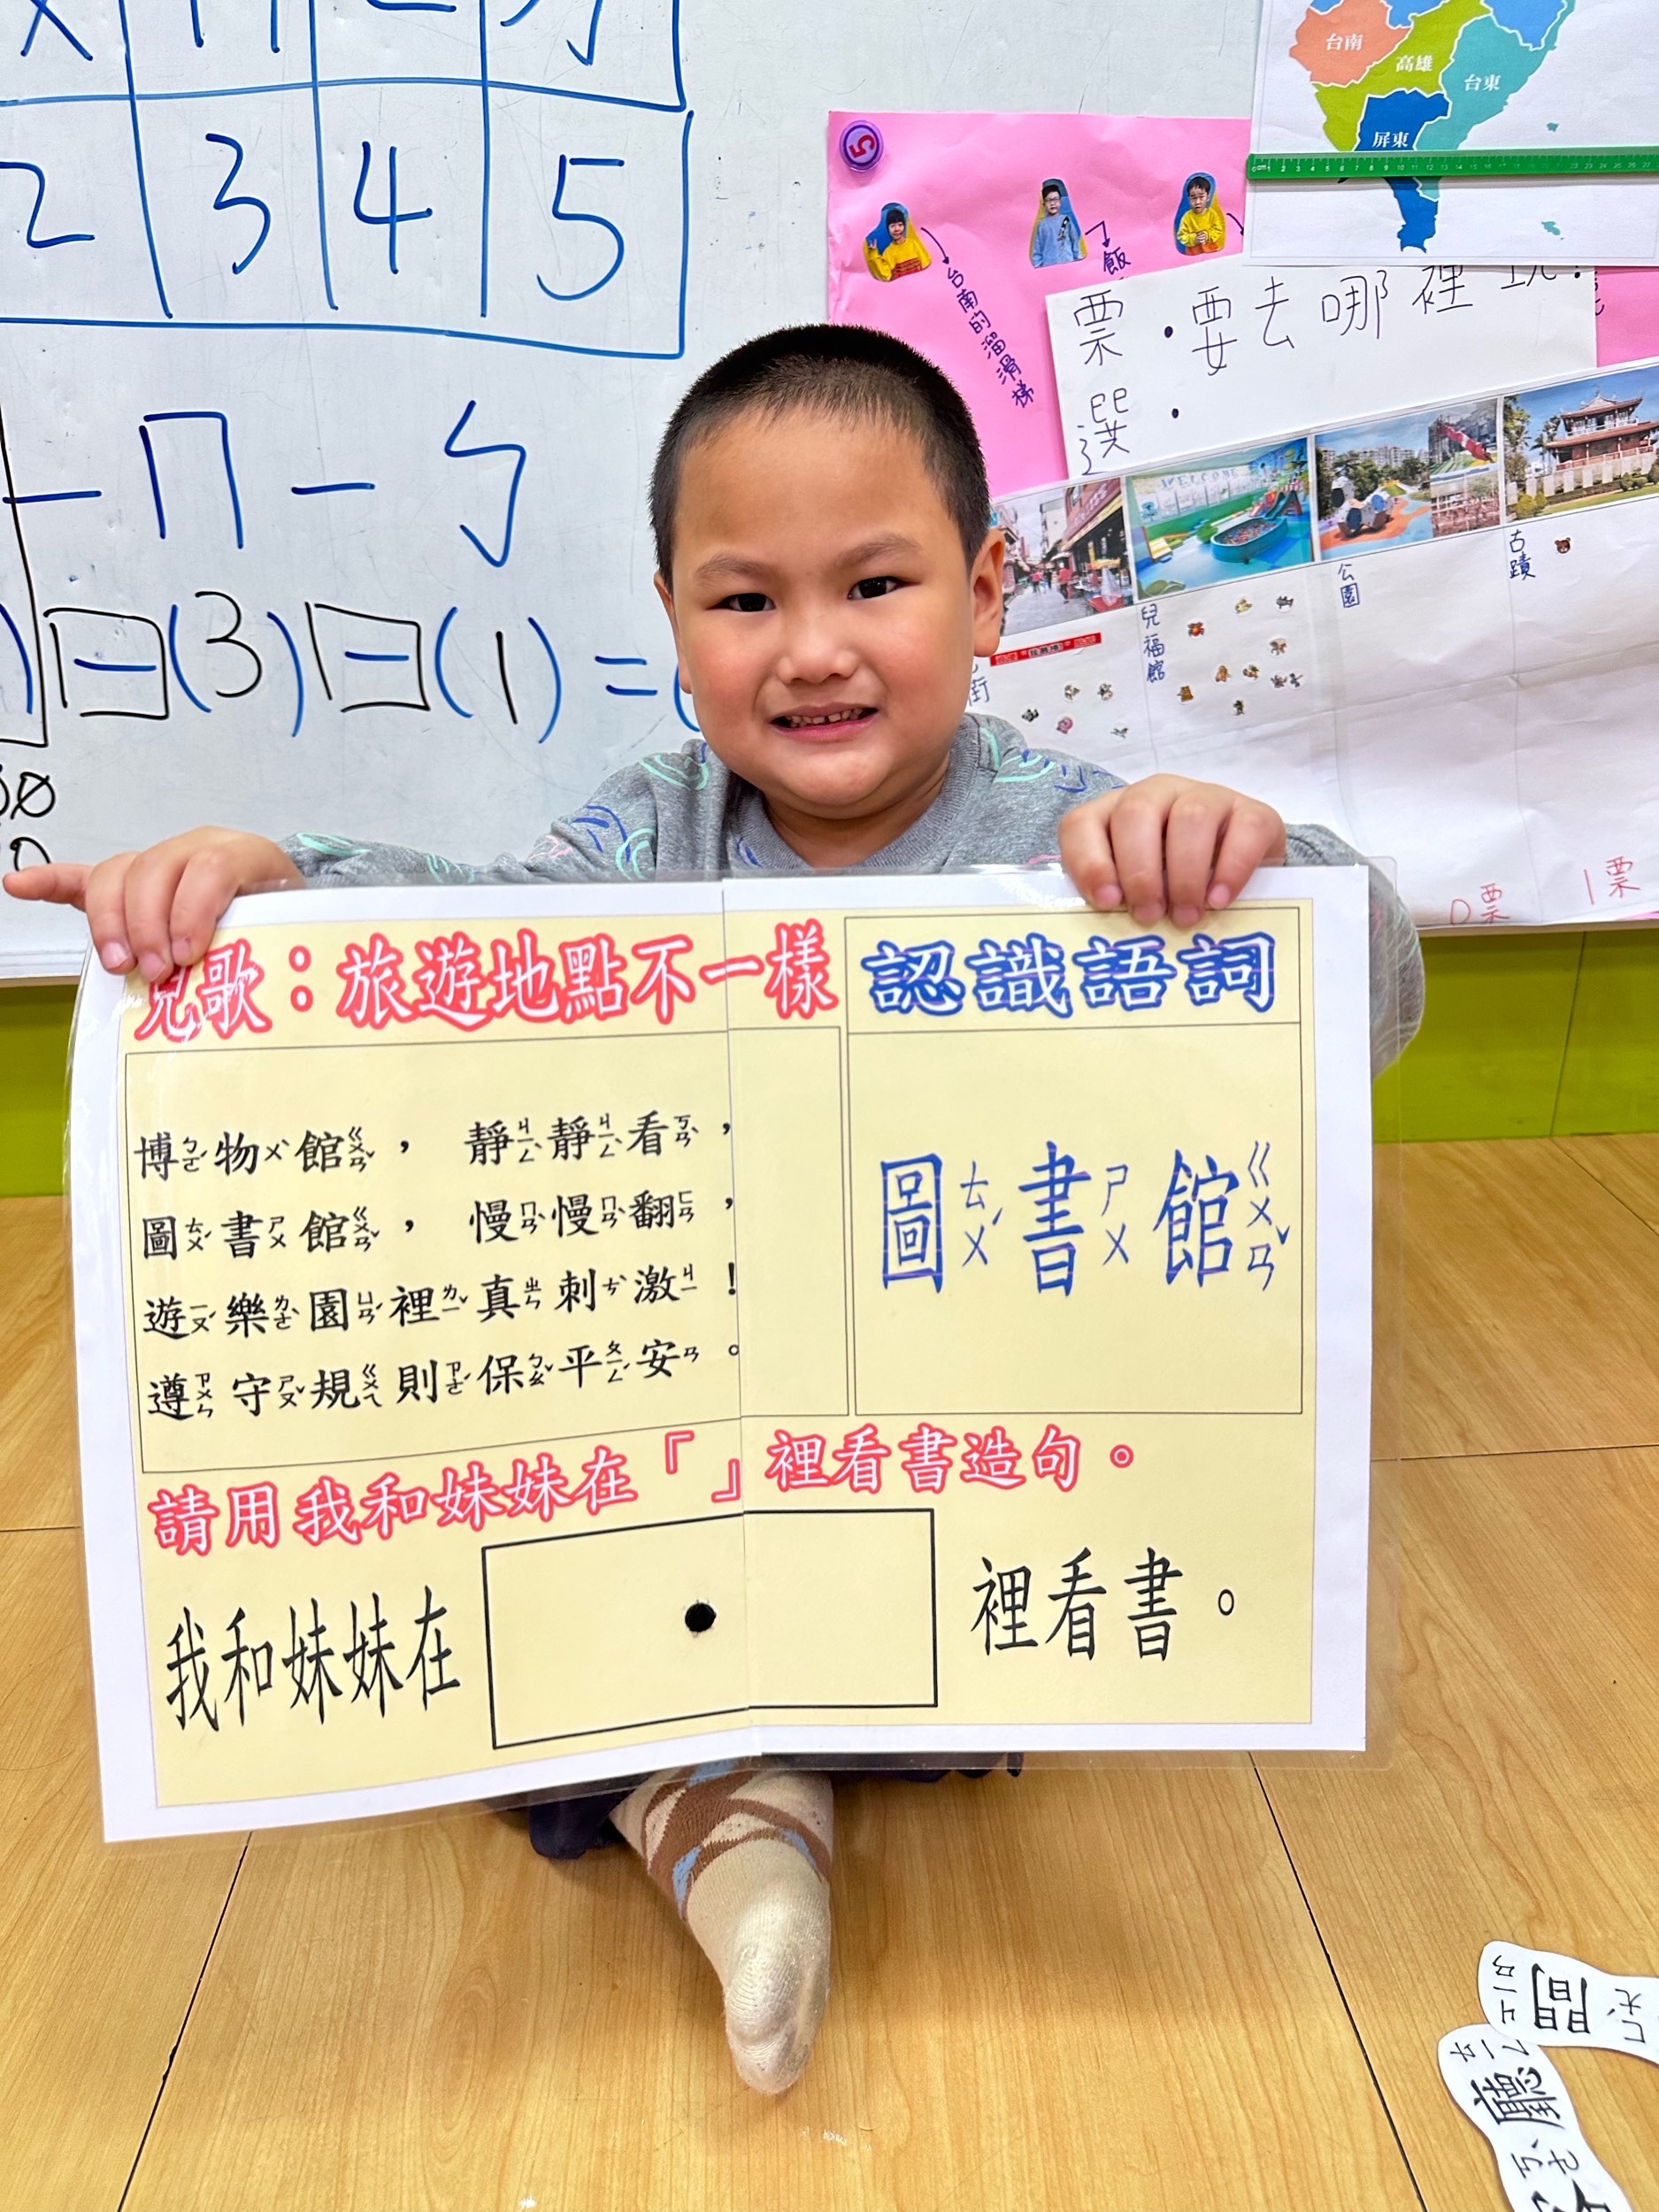 2 3 4 5
ㄇ - ㄅ
(3) - (1) = (
台南
高雄
台東
屏東
5
台南的溜滑梯
飯
票 · 要去哪裡
選 ·
WELCOME
街
兒福館
公園
古蹟
0票
1票
兒歌：旅遊地點不一樣
博ㄅㄛˊ物ㄨˋ館ㄍㄨㄢˇ，靜ㄐㄧㄥˋ靜ㄐㄧㄥˋ看ㄎㄢˋ，
圖ㄊㄨˊ書ㄕㄨ館ㄍㄨㄢˇ，慢ㄇㄢˋ慢ㄇㄢˋ翻ㄈㄢ，
遊ㄧㄡˊ樂ㄌㄜˋ園ㄩㄢˊ裡ㄌㄧˇ真ㄓㄣ刺ㄘˋ激ㄐㄧ！
遵ㄗㄨㄣ守ㄕㄡˇ規ㄍㄨㄟ則ㄗㄜˊ保ㄅㄠˇ平ㄆㄧㄥˊ安ㄢ。
認識語詞
圖ㄊㄨˊ書ㄕㄨ館ㄍㄨㄢˇ
請用我和妹妹在「」裡看書造句。
我和妹妹在 裡看書。
間
聽